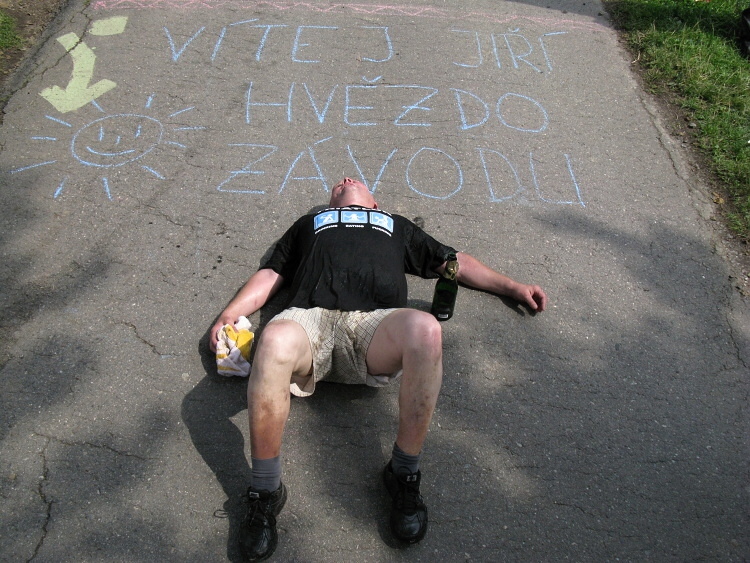 VÍTEJ JIŘÍ
HVĚZDO
ZÁVODU